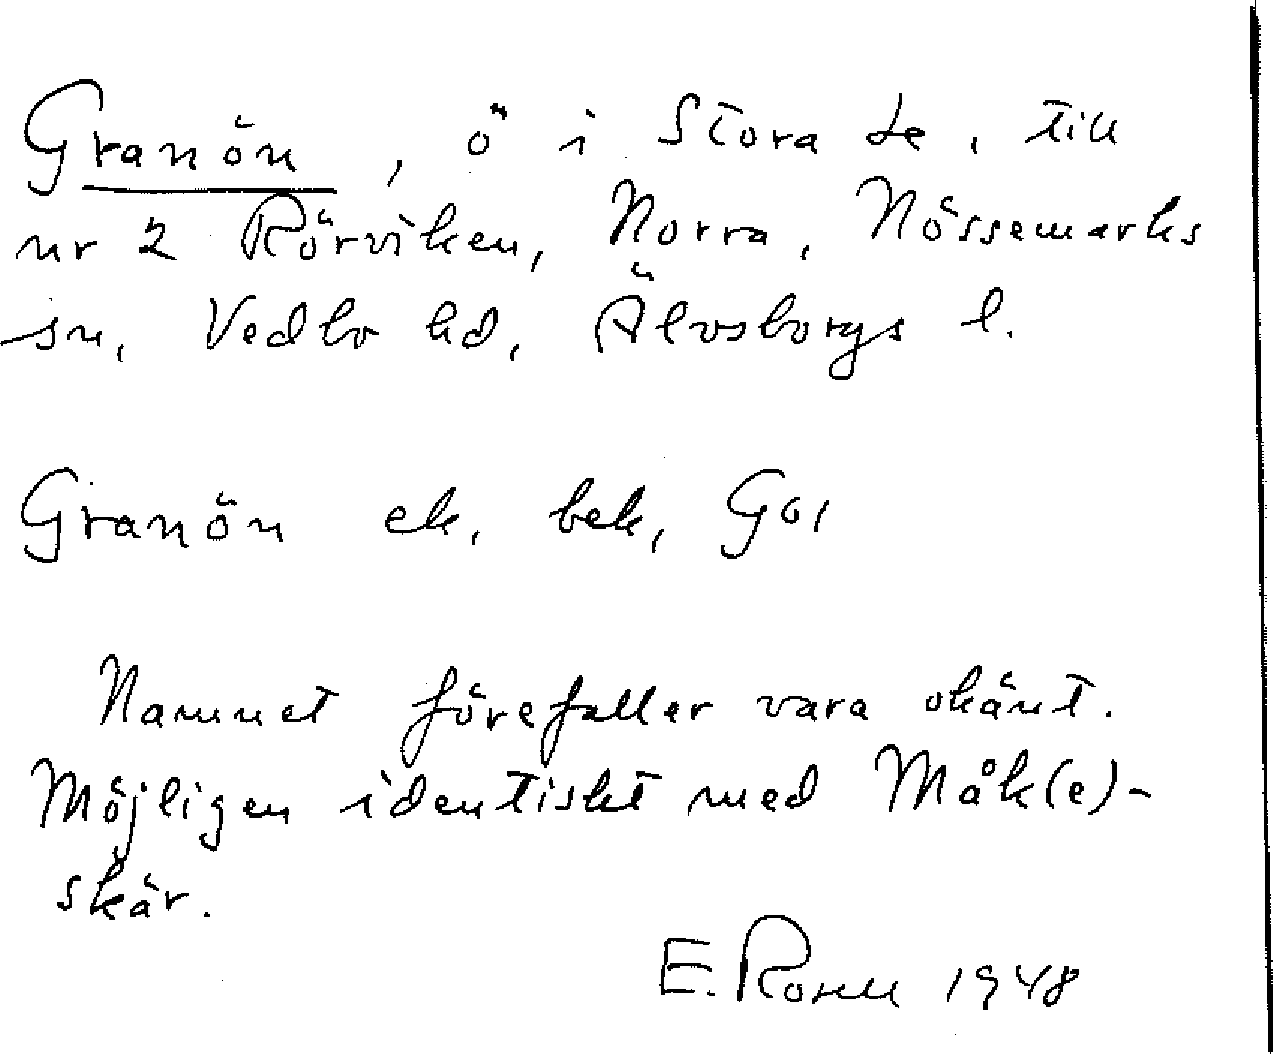 Granön, ö i Stora Le, till
nr 2 Rörviken, Norra, Nössemarks
sn, Vedbo hd, Älvsborgs l.
Granön ek. bek,
Namnet förefaller vara okänt.
Möjligen identiskt med Måk(e)-
skär.
E. Rosell 1948